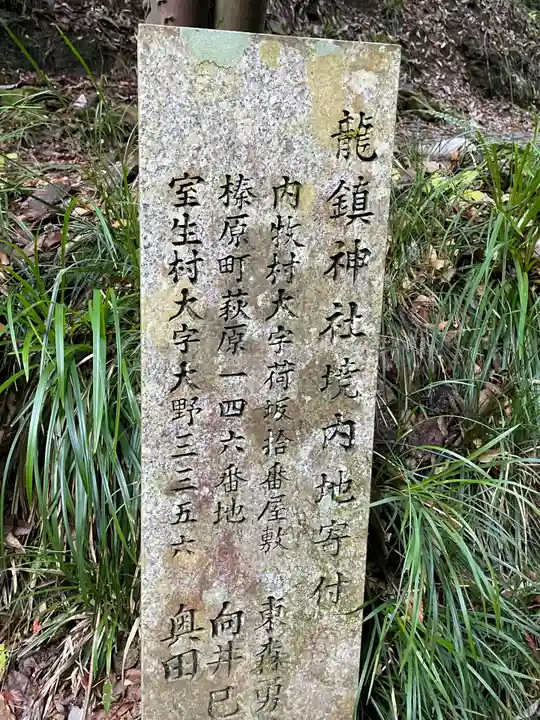 龍鎮神社境内地寄付
内牧村大字荷坂拾番屋敷 東森勇
榛原町萩原一四六番地 向井巳
室生村大字大野三三五六 奥田